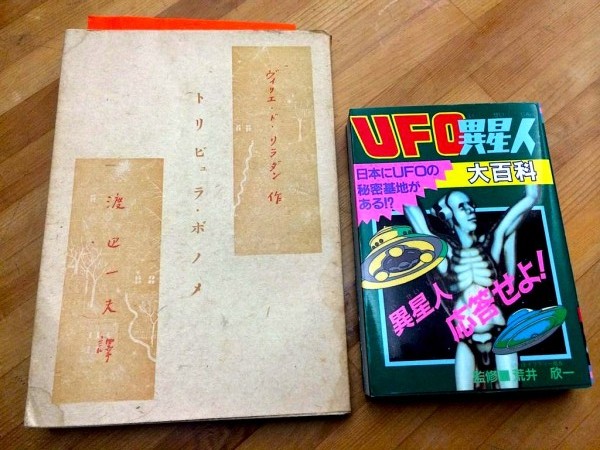 ヴィリエ・ド・リラダン作
トリビュラ・ボノメ
渡辺一夫譯
UFO異星人
大百科
日本にUFOの
秘密基地が
ある!?
異星人
応答せよ!
監修■荒井 欣一